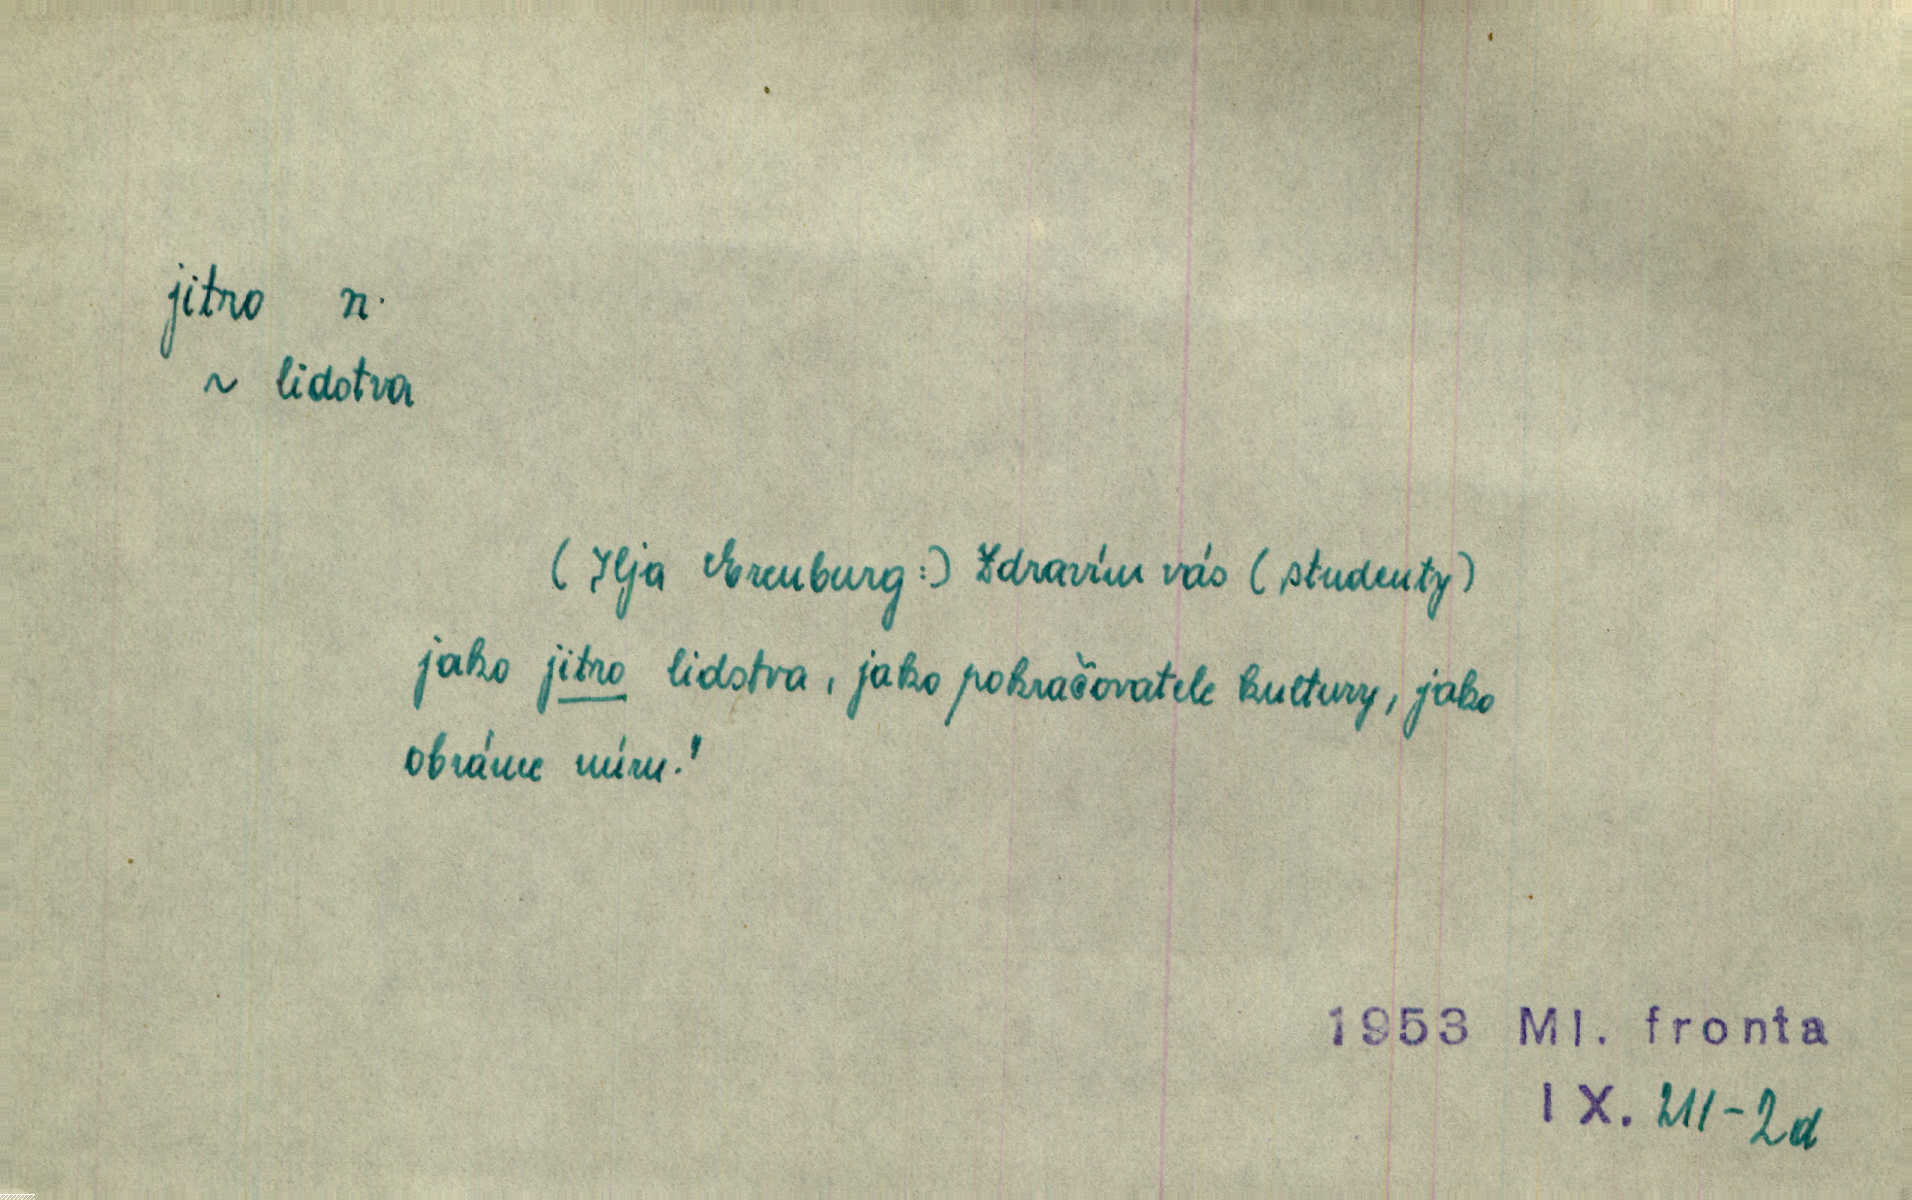 jitro n.
~ lidstva
(Ilja Erenburg:) Zdravím vás (studenty)
jako jitro lidstva, jako pokračovatele kultury, jako
obránce míru!
1953 Ml. fronta
IX. 211-2d